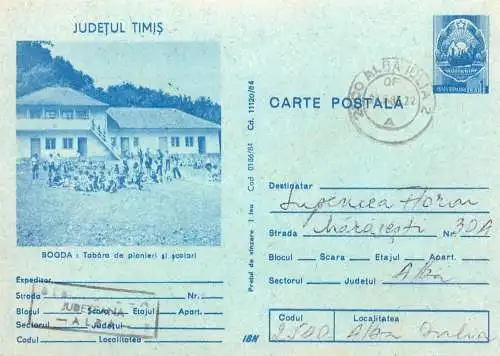 JUDEȚUL TIMIȘ
BOGDA : Tabăra de pionieri și școlari
Expeditor
Strada Nr.
Blocul Scara Etajul Apart.
Sectorul Județul
Codul Localitatea
JUDEȚEANĂ
— ALBA —
Prețul de vînzare 1 leu Cod 0186/84 Cd. 11120/84
CARTE POSTALĂ
2500 ALBA IULIA 2
A
Destinatar
Florin
Strada Mărășești Nr. 30A
Blocul Scara Etajul Apart.
Sectorul Județul Alba
Codul Localitatea
2500 Alba Iulia
IBN